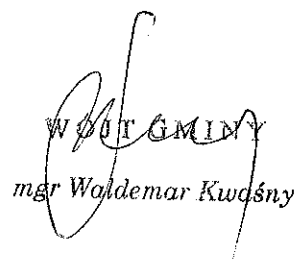 WÓJT GMINY
mgr Waldemar Kwaśny